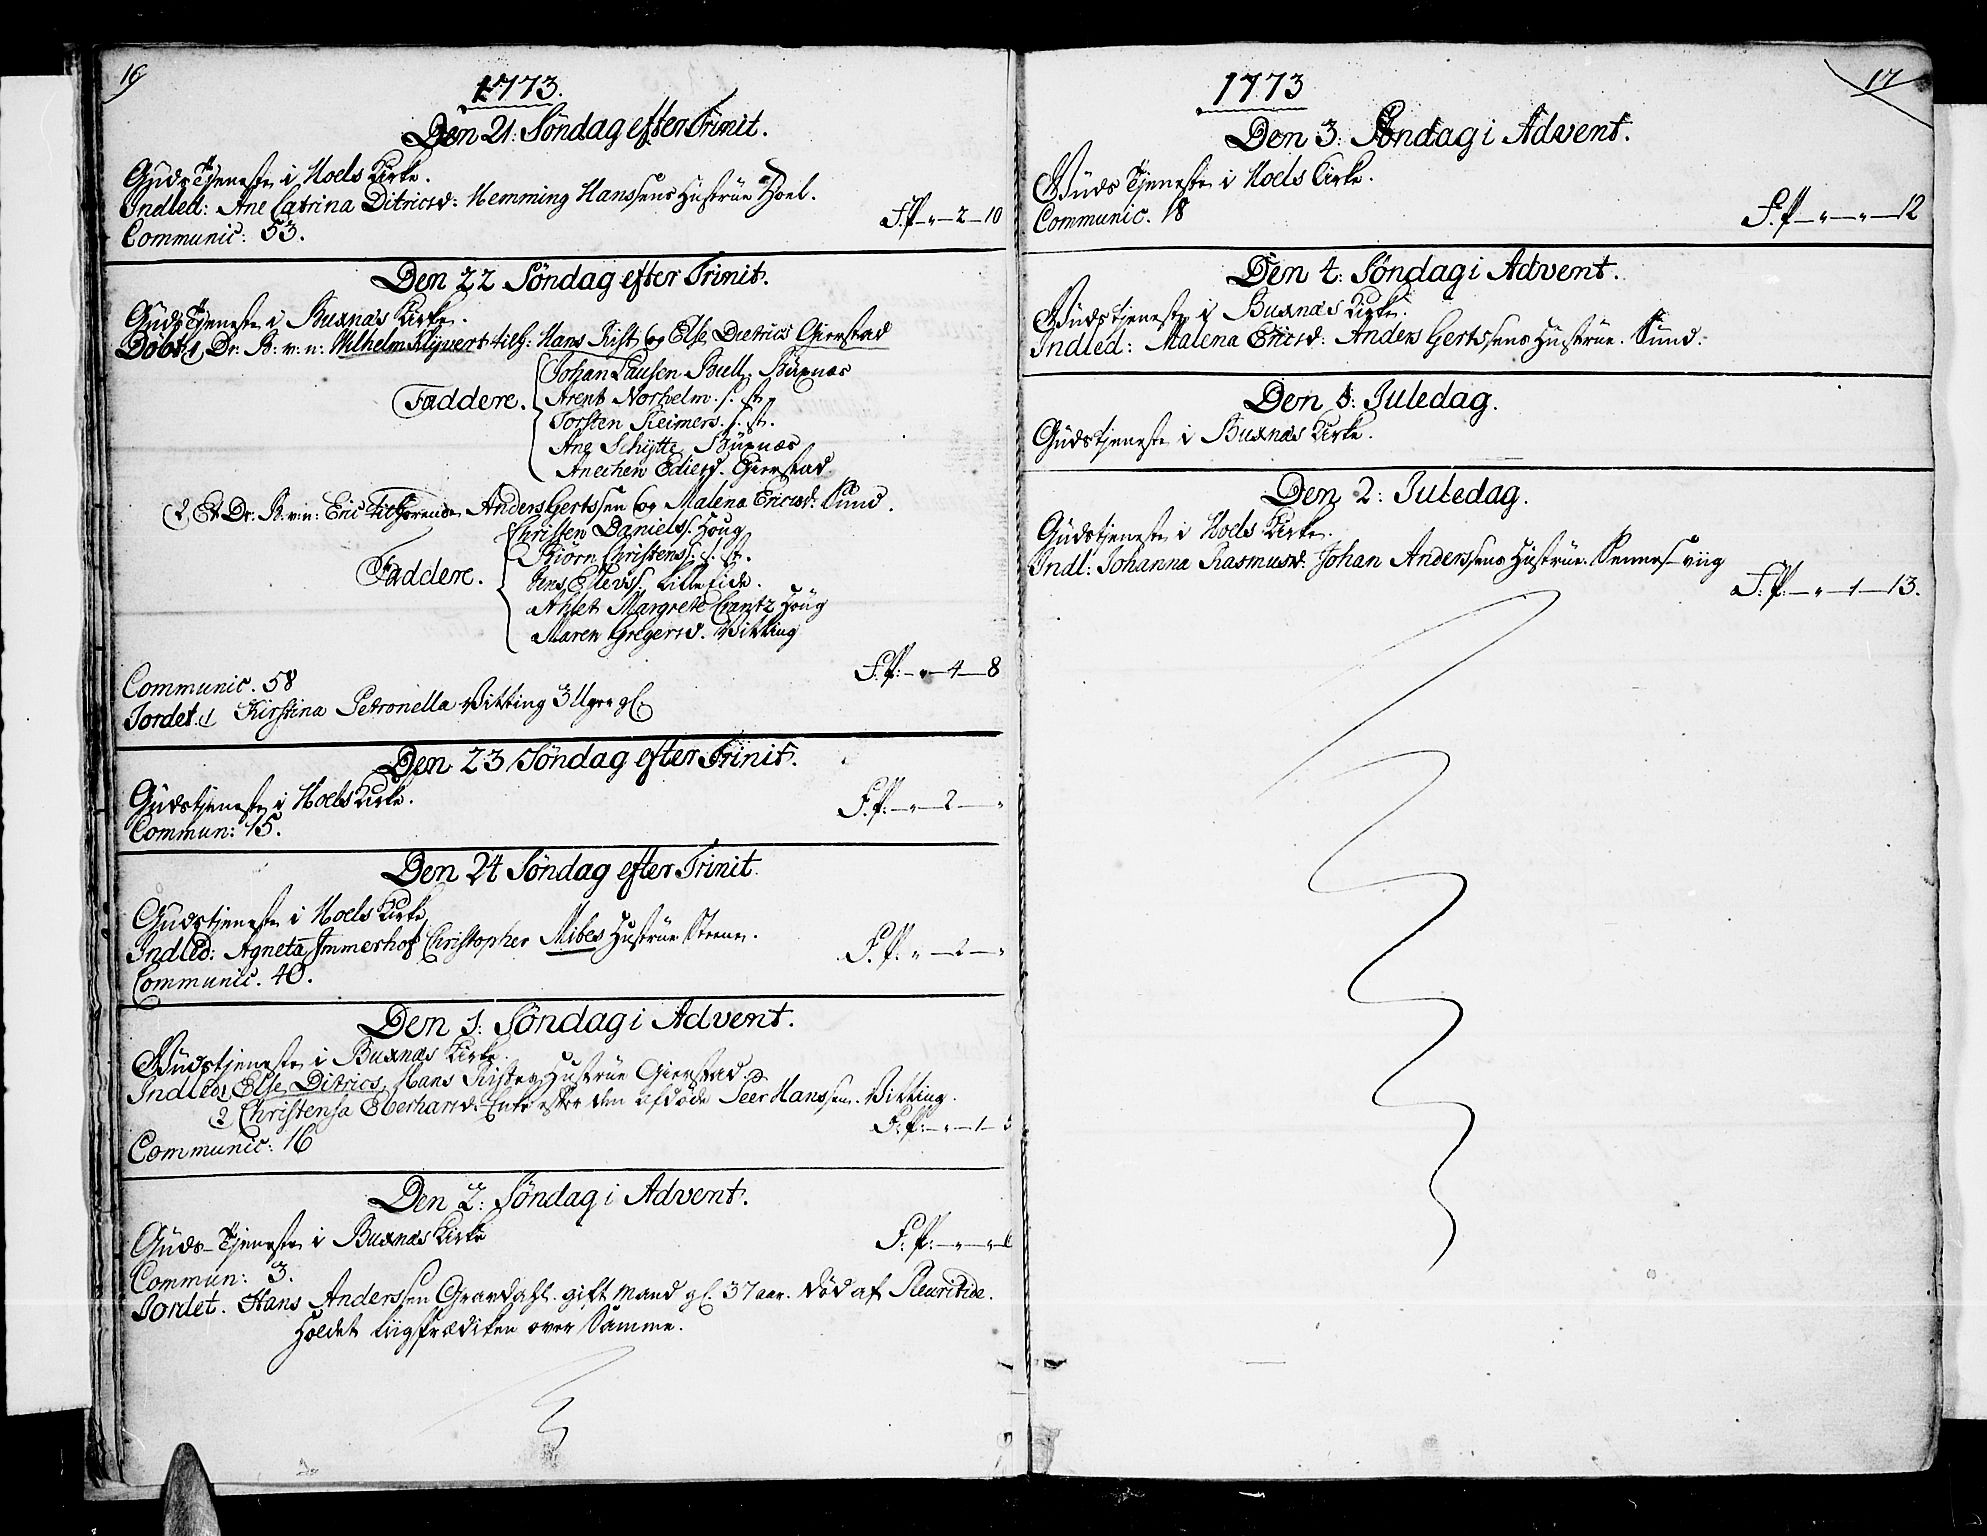 16
1773.
Den 21: Söndag efter Trinit.
Guds Tjeneste i Hoels Kirke.
Indled: Ane Catrina Ditricsd: Hemming Hanssens Hustrüe Hoel.
F.P. - " - 2 - 10
Communic: 53.
Den 22 Söndag efter Trinit.
Guds Tjeneste i Buxnæs Kirke.
Döbt 1 Dr. B: v: n: Wilhelm tilh: Hans Rist og Else Dietrics Gierstad
Johan Lausen Bull, Büxnæs
Faddere. Arent Norholm. s. st.
Torsten Reimers. s. st.
Ane Schytte Büxnæs
Anechen Gierstad.
2 Et Dr. B. v: n: Eric tilhörende Anders Gertssen og Malena Ericsd: Sund.
Christen Daniels. Houg
Biörn Christens: s. st.
Faddere. Jens Lille Eide.
Ahlet Margrete Crantz Houg
Maren Gregersd. Vitting
F.P: - " - 4 - 8
Communic. 58
Jordet. 1 Kirstina Petronella Vitting 3 Uger gl.
Den 23 Söndag efter Trinit.
Gudstjeneste i Hoels Kirke.
F.P: - " - 2 - "
Commun: 15.
Den 24 Söndag efter Trinit.
Gudstjeneste i Hoels Kirke
Indled: Agneta Immerhof Christopher Mibes Hustrüe Steene.
F.P. " - 2 - "
Communic. 40.
Den 1: Söndag i Advent.
Gudstjeneste i Buxnæs Kirke.
Indled 1 Else Ditrics, Hans Ristes Hustrüe Gierstad.
2 Christensa Eberhardsd: Enke efter den afdöde Peer Hanssen. Vitting.
F.P: - " - 1 - 3
Communic: 16
Den 2: Söndag i Advent.
Guds-Tjeneste i Buxnæs Kirke
F.P: - " - " - 6
Commun: 3.
Jordet. Hans Anderssen Gravdahl. gift Mand gl. 37 aar. död af Pleuritide.
Holdet Liigprædiken over Samme.
17
1773
Den 3: Söndag i Advent.
Guds Tjeneste i Hoels Kirke.
Communic. 18
F.P - " - " - 12
Den 4: Söndag i Advent.
Gudstjeneste i Buxnæs Kirke.
Indled: Malena Ericsd: Anders Gertssens Hustrüe. Sund.
Den 1: Juledag.
Gudstjeneste i Buxnæs Kirke.
Den 2: Juledag.
Gudstjeneste i Hoels Kirke.
Indl: Johanna Rasmusd: Johan Anderssens Hustrüe. Sennesviig
F.P: - " - 1 - 13.